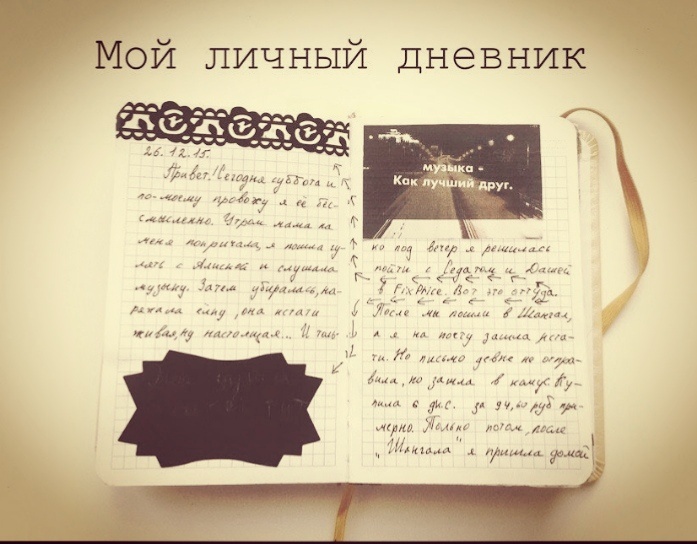 Мой личный дневник
26.12.15.
Привет! Сегодня суббота и
по-моему провожу я её бес-
смысленно. Утром мама на
меня покричала, я пошла гу-
лять с Алиской и слушала
музыку. Затем убиралась, на-
ряжала ёлку, она кстати
живая, ну настоящая... И толь-
музыка -
Как лучший друг.
ко под вечер я решилась
пойти с Седатом и Дашей
в FixPrice. Вот это оттуда.
После мы пошли в Шангал,
а я на почту зашла, кста-
ти. Но письмо девче не отпра-
вила, но зашла в канус. Ку-
пила 6 за 94,60 руб при-
мерно. Только потом, после
„Шангала" я пришла домой!